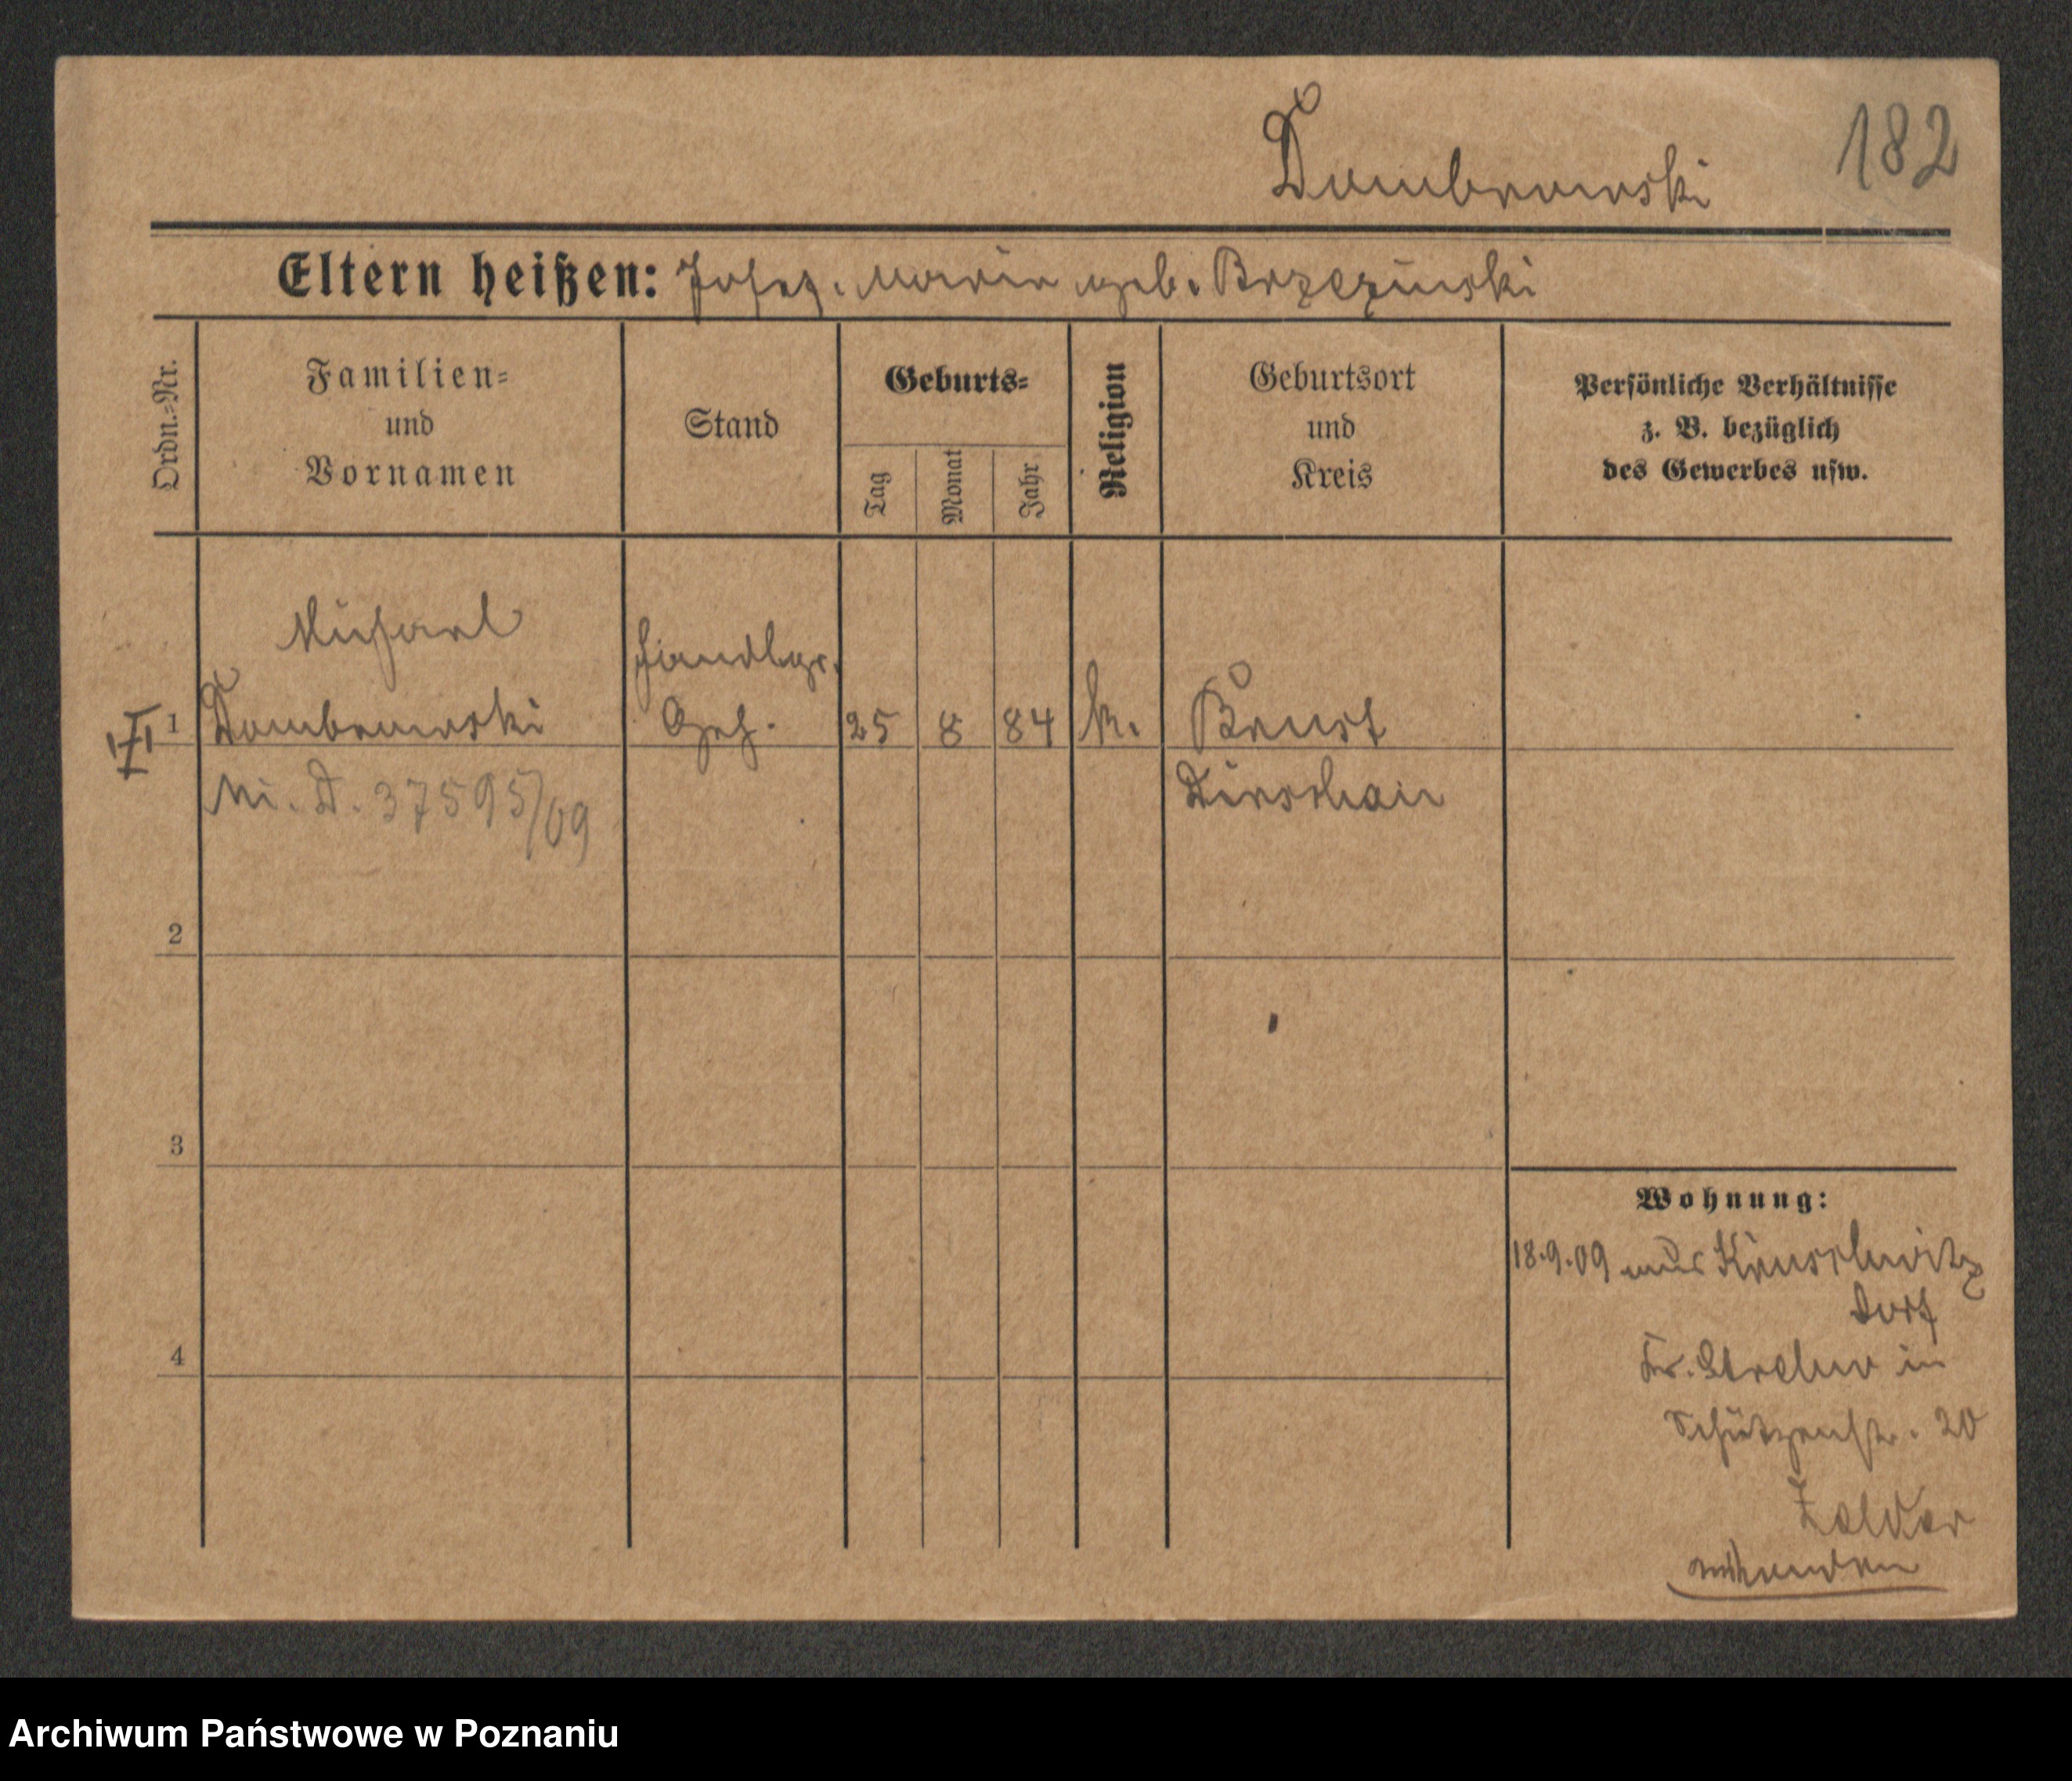 Dombrowski
182
Eltern heißen: Josef. Maria geb. Brzezinski
Ordn.-Nr.
Familien-
und
Vornamen
Stand
Geburts-
Tag
Monat
Jahr
Religion
Geburtsort
und
Kreis
Persönliche Verhältnisse
z. B. bezüglich
des Gewerbes usw.
Michael
Handlgs.
1 Dombrowski Geh. 25 8 84 k. Brust
Mi. D. 37595/09
Dirschau
2
3
4
Wohnung:
18.9.09 aus Kruschwitz
Dorf
Kr. Strelno in
Schützenstr. 20
Archiwum Państwowe w Poznaniu